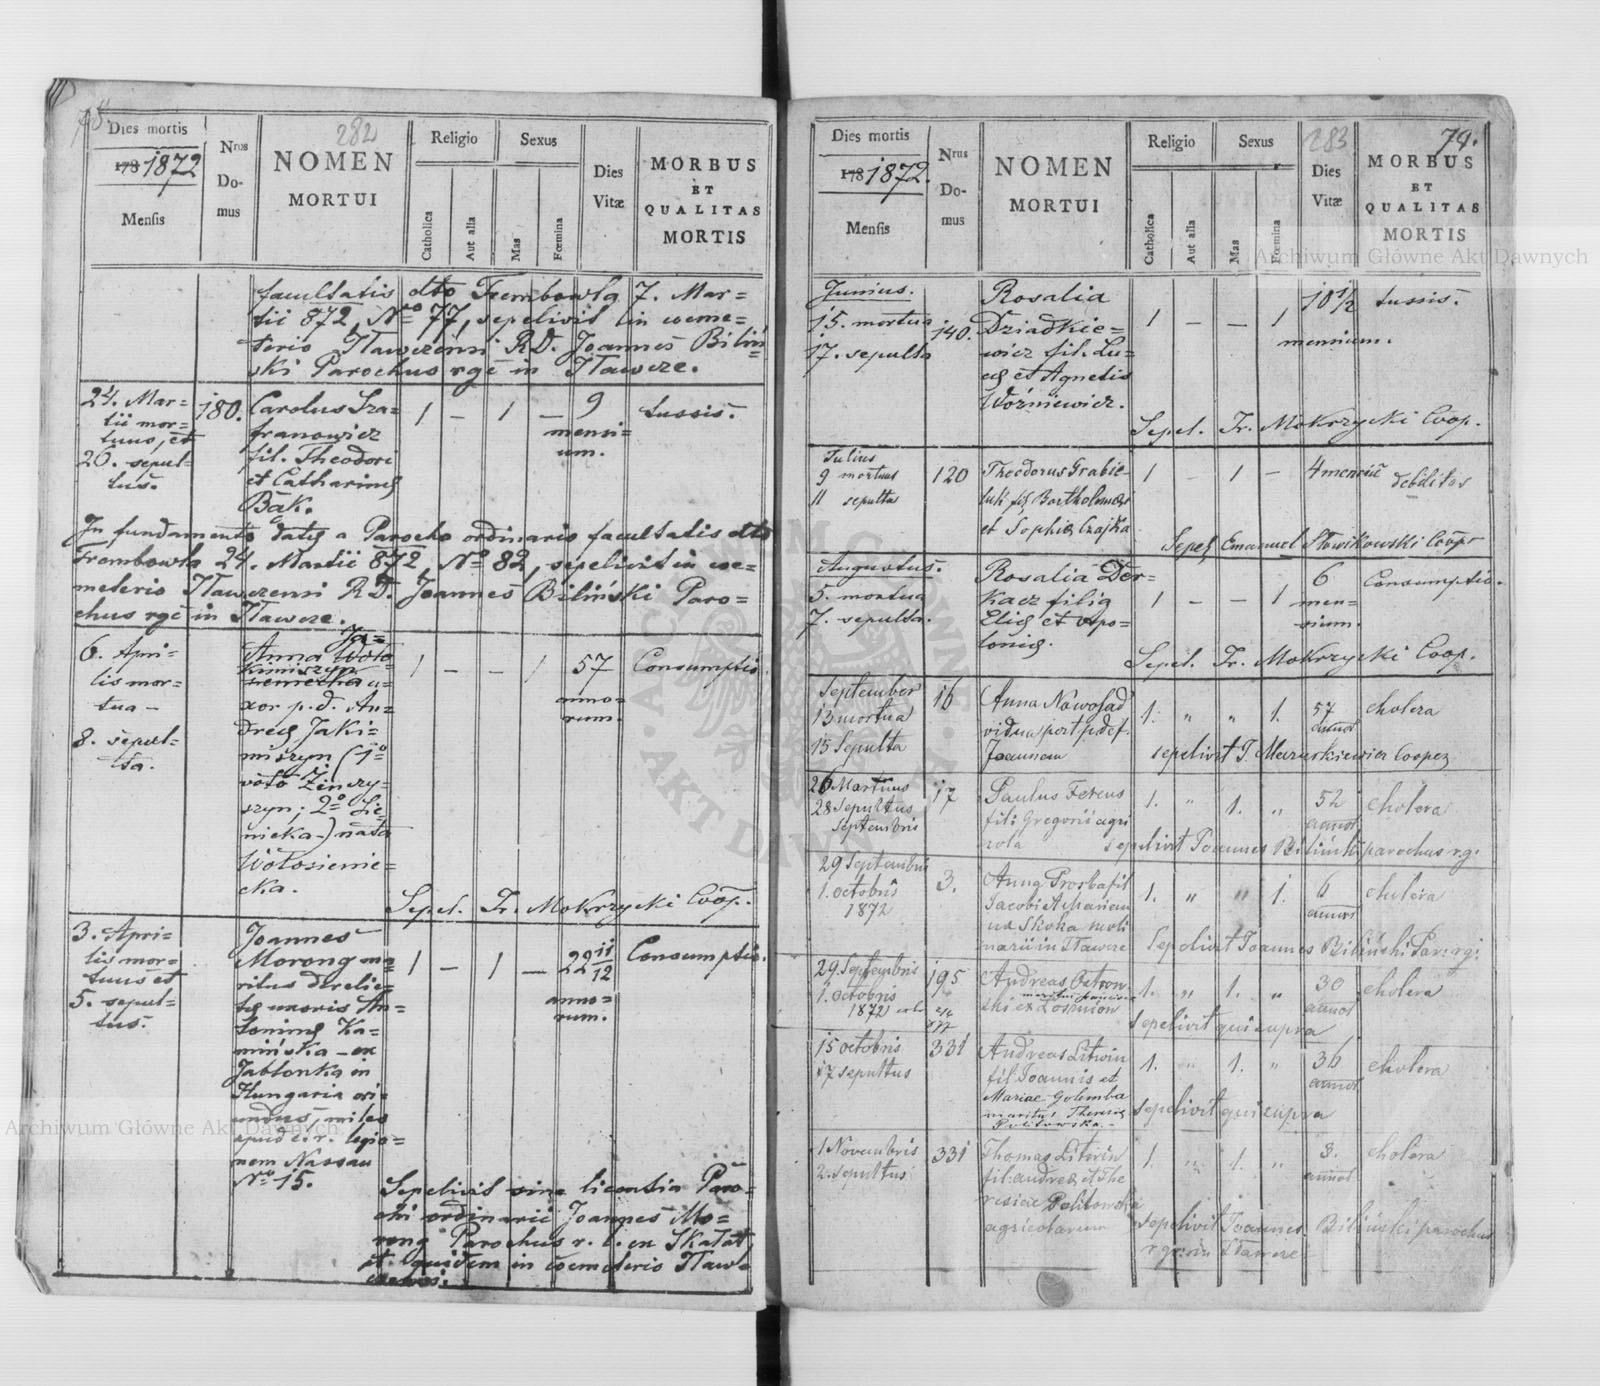 75.
282
Dies mortis
178 1872
Mensis
Nros
Do-
mus
NOMEN
MORTUI
Religio
Catholica
Aut alia
Sexus
Mas
Fœmina
Dies
Vitæ
MORBUS
ET
QUALITAS
MORTIS
facultatis dto Trembowla 7. Mar=
tii 872, No 77, sepelivit in coeme=
terio Iławczensi R.D. Joannes Biliń=
ski Parochus rgc in Iławcze.
24. Mar=
tii mor=
tuus, et
26. sepul=
tus.
180.
Carolus Sza=
franowicz
fil. Theodori
et Catharinę
Bąk.
1 – 1 –
9
mensi=
um.
tussis.
In fundamento datę a Parocho ordinario facultatis dto
Trembowla 24. Martii 872, No 82, sepelivit in coe=
meterio Iławczensi R.D. Joannes Biliński Paro=
chus rgc in Iławcze.
6. Apri=
lis mor=
tua –
8. sepul=
ta.
Anna Ja=
kimiszyn
u=
xor p.d. An=
dreę Jaki=
miszyn (1o
voto Zinczy=
szyn; 2o Sie=
nicka) nata
Wołosienie=
cka.
1 – – 1
57
anno=
rum.
Consumptio
Sepel. Fr. Mokrzycki Coop.
3. Apri=
lis mor=
tuus et
5. sepul=
tus.
Joannes
Morong ma=
ritus derelic=
tę uxoris An=
toninę Ka=
mińska – ex
Jabłonka in
Hungaria ori=
undus, miles
apud c. r. legio=
nem Nassau
No 15.
1 – 1 –
22 11/12
anno=
rum.
Consumptio.
Sepelivit sine licentia Paro=
chi ordinarii Joannes Mo=
rong Parochus r. l. ex Skałat,
et quidem in coemeterio Iław=
czensi.
283
79.
Dies mortis
178 1872.
Mensis
Nrus
Do-
mus
NOMEN
MORTUI
Religio
Catholica
Aut alia
Sexus
Mas
Fœmina
Dies
Vitæ
MORBUS
ET
QUALITAS
MORTIS
Junius.
15. mortua
17. sepulta
140.
Rosalia
Dziadkie=
wicz fil. Lu=
cę et Agnetis
Woźniewicz.
1 – – 1
10 1/2
mensium.
tussis.
Sepel. Fr. Mokrzycki Coop.
Julius
9 mortuus
11 sepultus
120
Theodorus Grabie=
luk fil. Bartholomei
et Sophię Czajka
1 - 1 –
4 mensiū
debilitas
Sepel Emanuel Słowikowski Coop
Augustus.
5. mortua
7. sepulta.
Rosalia Der=
kacz filia
Elię et Apo=
lonię.
1 – – 1
6
men=
sium.
Consumptio.
Sepel. Fr. Mokrzycki Coop.
September
13 mortua
15 Sepulta
16
Anna Nowosad
vidua post p.def.
Joannem
1. " " 1.
57
annor
cholera
sepelivit J. Mazurkiewicz Cooper
26 Mortuus
28 Sepultus
Septembris
17
Paulus Ferens
fil: Gregorii agri
cola
1. " 1. "
52
annor
cholera
sepelivit Joannes Biliński parochus r.g.
29 Septembris
1. octobris
1872
3.
Anna Prosba fil
Jacobi et Marian
na Skoka moli
narii in Iławcze
1. " " 1.
6
annor
cholera
Sepelivit Joannes Biliński Par: rg:
29. Septembris
1. octobris
1872
195
Andreas Ostrow
ski ex
1. " 1. "
30
annor
cholera
sepelivit qui supra
15 octobris
17 sepultus
331
Andreas Litwin
fil. Joannis et
Mariae Golemba
maritus Theresię
Politowska.
1. " 1. "
36
annor
cholera
sepelivit qui supra
1 Novembris
2. sepultus
331
Thomas Litwin
fil: andreę et The
resiae Politowska
agricolarum
1. " 1. "
3.
annor
cholera
sepelivit Joannes Biliński parochus
r.g: in Iławcze
Archiwum Główne Akt Dawnych
Archiwum Główne Akt Dawnych